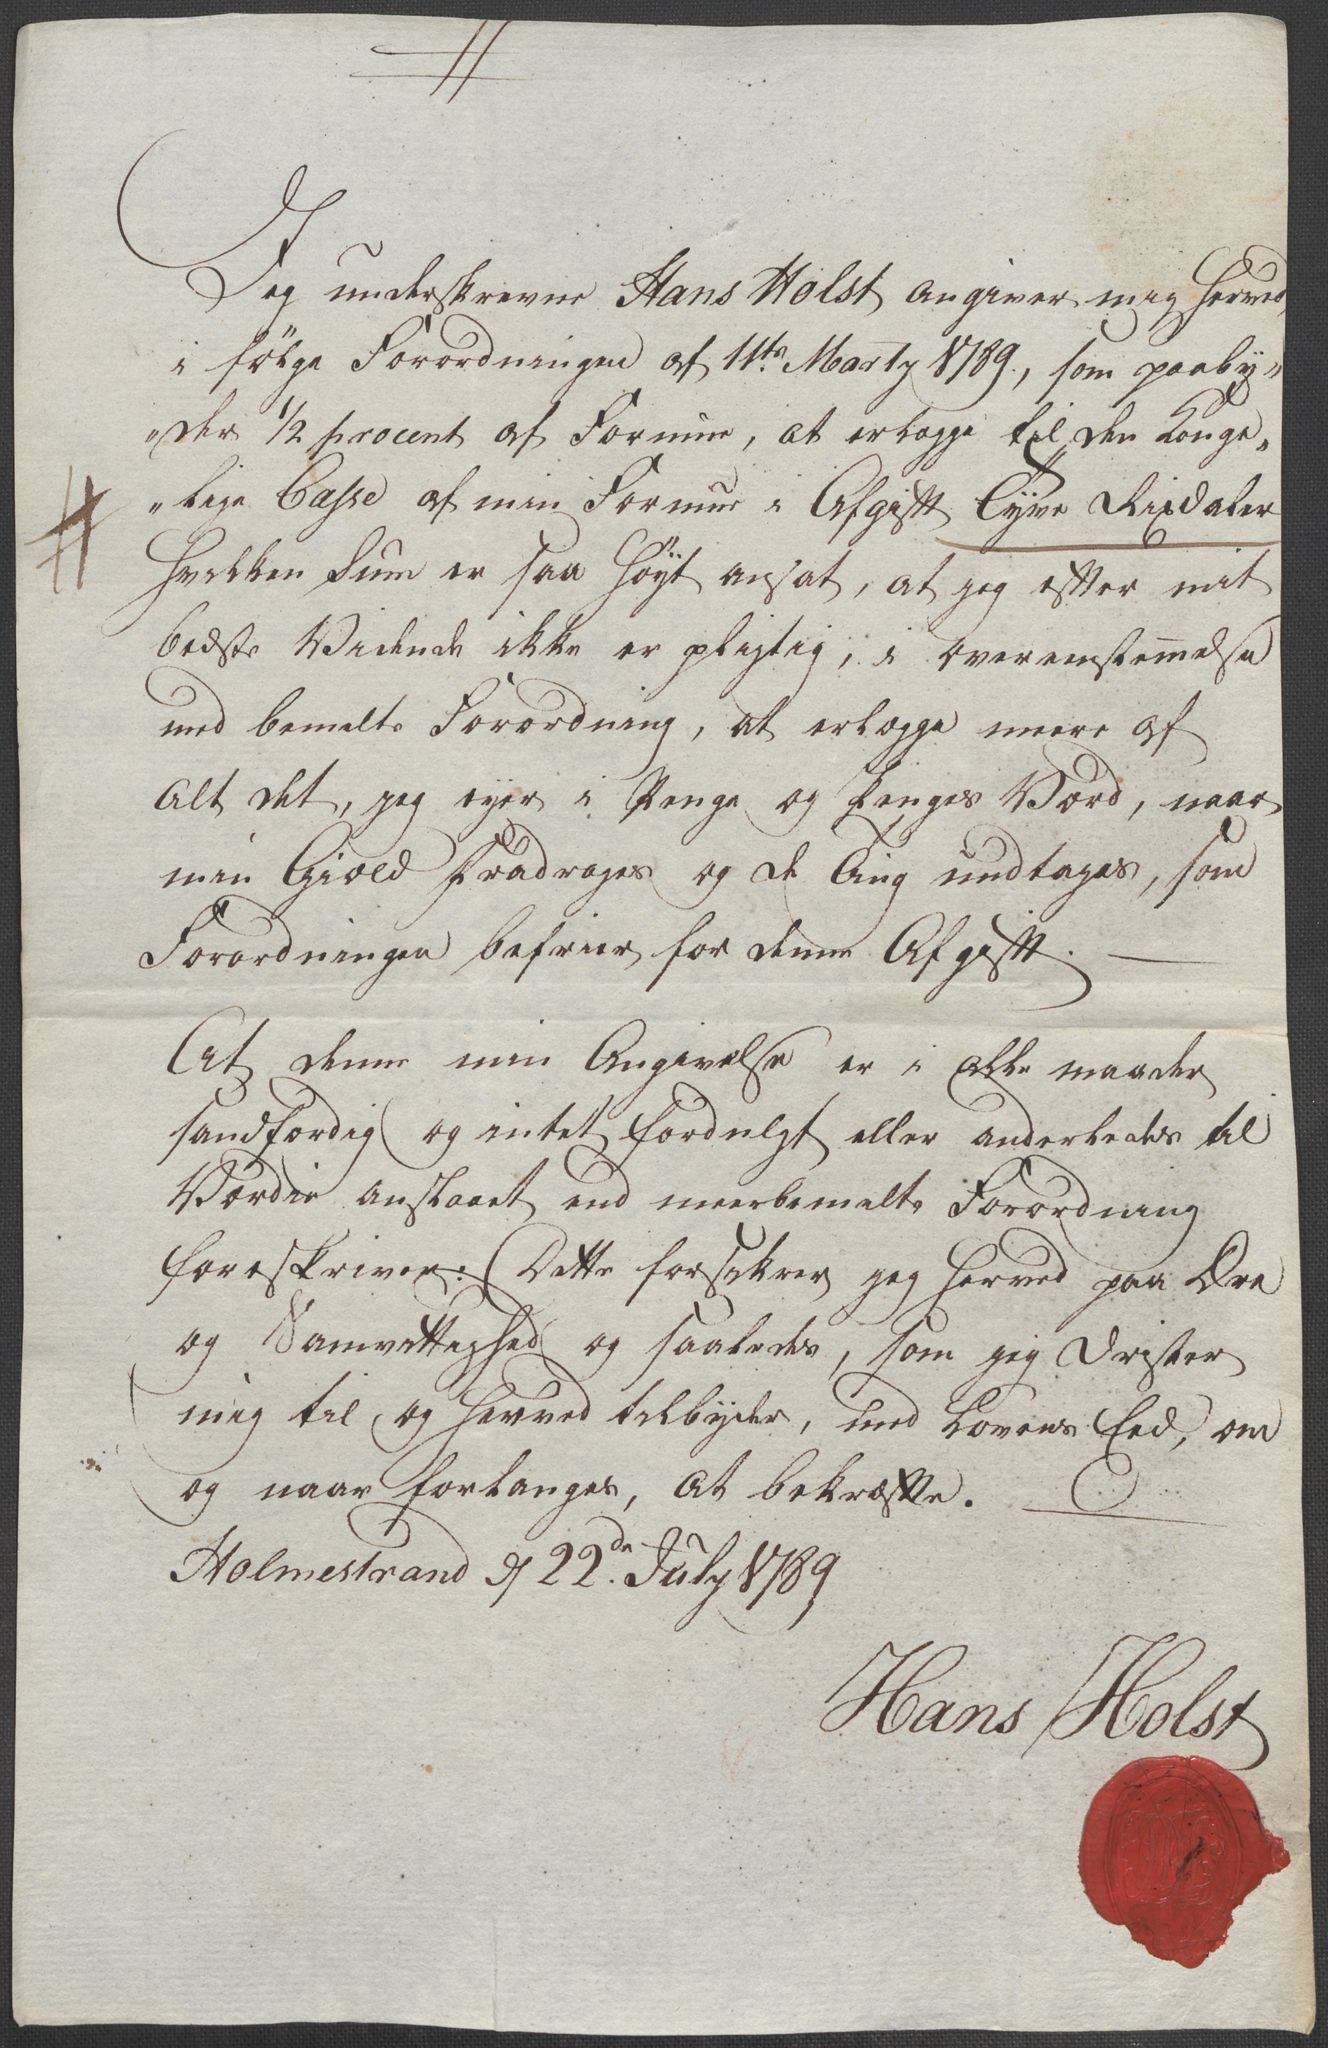 Jeg underskrevne Hans Holst angiver mig herved,
i følge Forordningen af 11te Marty 1789., som paaby„
„der 1/2 procent af Formue, at erlegge til den Konge„
„lige Casse af min Formue i Afgift Tyve Rixdaler
hvilken Sum er saa høyt ansat, at jeg efter mit
bedste Vidende ikke er pligtig, i overenstemmelse
med bemelte Forordning, at erlægge meere af
alt det, jeg eyer i Penge og Penges Værd, naar
min Giæld fradrages og de Ting undtages, som
Forordningen befrier for denne Afgift.
At denne min Angivelse er i alle maader
sandfærdig og intet fordulgt eller anderledes til
Værdie anslaaet end meerbemelte Forordning
foreskriver: Dette forsikrer jeg herved paa Ære
og Samvittighed og saaledes, som jeg drister
mig til og herved tilbyder, med Lovens Eed, om
og naar forlanges, at bekræfte.
Holmestrand d 22de July 1789
Hans Holst